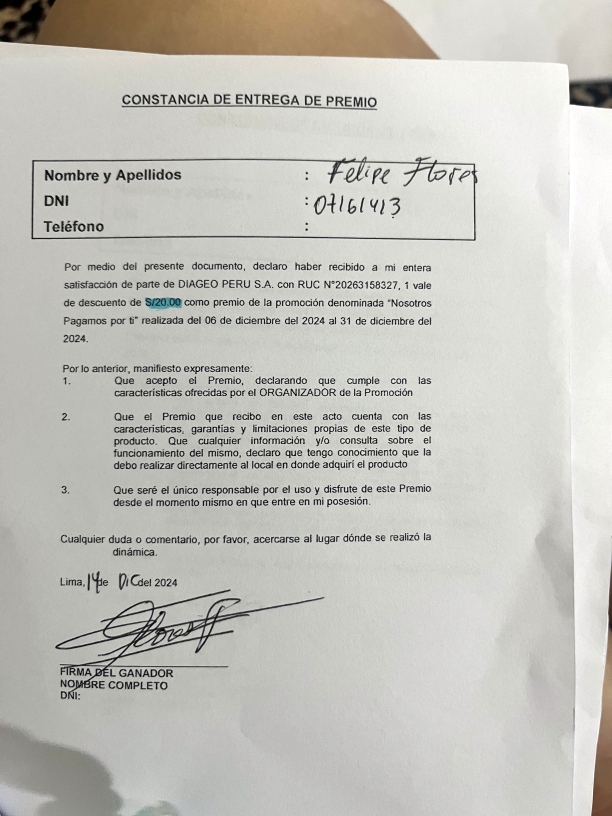 CONSTANCIA DE ENTREGA DE PREMIO
Nombre y Apellidos : Felipe Flores
DNI : 07161413
Teléfono :
Por medio del presente documento, declaro haber recibido a mi entera
satisfacción de parte de DIAGEO PERU S.A. con RUC N°20263158327, 1 vale
de descuento de S/20.00 como premio de la promoción denominada "Nosotros
Pagamos por ti" realizada del 06 de diciembre del 2024 al 31 de diciembre del
2024.
Por lo anterior, manifiesto expresamente:
1. Que acepto el Premio, declarando que cumple con las
características ofrecidas por el ORGANIZADOR de la Promoción
2. Que el Premio que recibo en este acto cuenta con las
características, garantías y limitaciones propias de este tipo de
producto. Que cualquier información y/o consulta sobre el
funcionamiento del mismo, declaro que tengo conocimiento que la
debo realizar directamente al local en donde adquirí el producto
3. Que seré el único responsable por el uso y disfrute de este Premio
desde el momento mismo en que entre en mi posesión.
Cualquier duda o comentario, por favor, acercarse al lugar dónde se realizó la
dinámica.
Lima, 14 de DIC del 2024
FIRMA DEL GANADOR
NOMBRE COMPLETO
DNI: